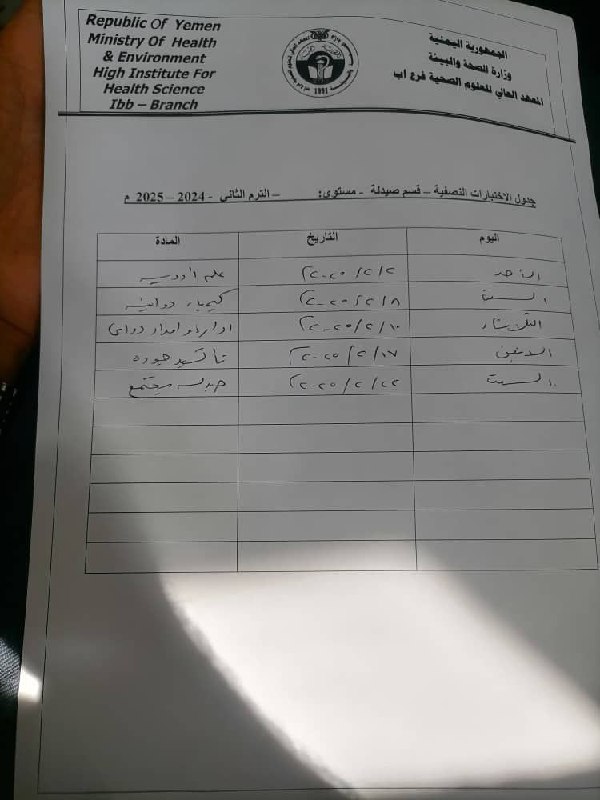 Republic Of Yemen
Ministry Of Health
& Environment
High Institute For
Health Science
Ibb – Branch
الجمهورية اليمنية
وزارة الصحة والبيئة
المعهد العالي للعلوم الصحية فرع اب
1991
جدول الاختبارات النصفية – قسم صيدلة - مستوى: – الترم الثاني - 2024 – 2025 م
اليوم التاريخ المادة
الأحد ٢٠٢٥/٢/٢ علم أدوية
السبت ٢٠٢٥/٢/٨ كيمياء دوائية
٢٠٢٥/٢/١٠ ادارة وامداد دوائي
الاثنين ٢٠٢٥/٢/١٧ تأكيد جودة
السبت ٢٠٢٥/٢/٢٢ صيدلة مجتمع